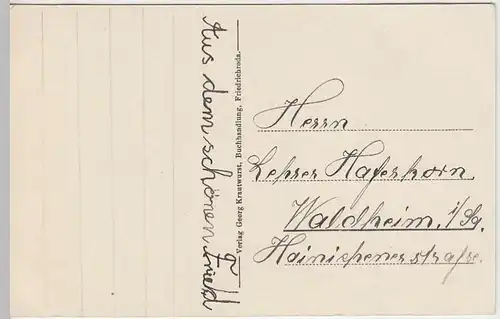 Aus dem schönen Fried
Verlag Georg Krautwurst, Buchhandlung, Friedrichroda.
Herrn
Lehrer Haferkorn
Waldheim i/Sa.
Hainichenerstraße.